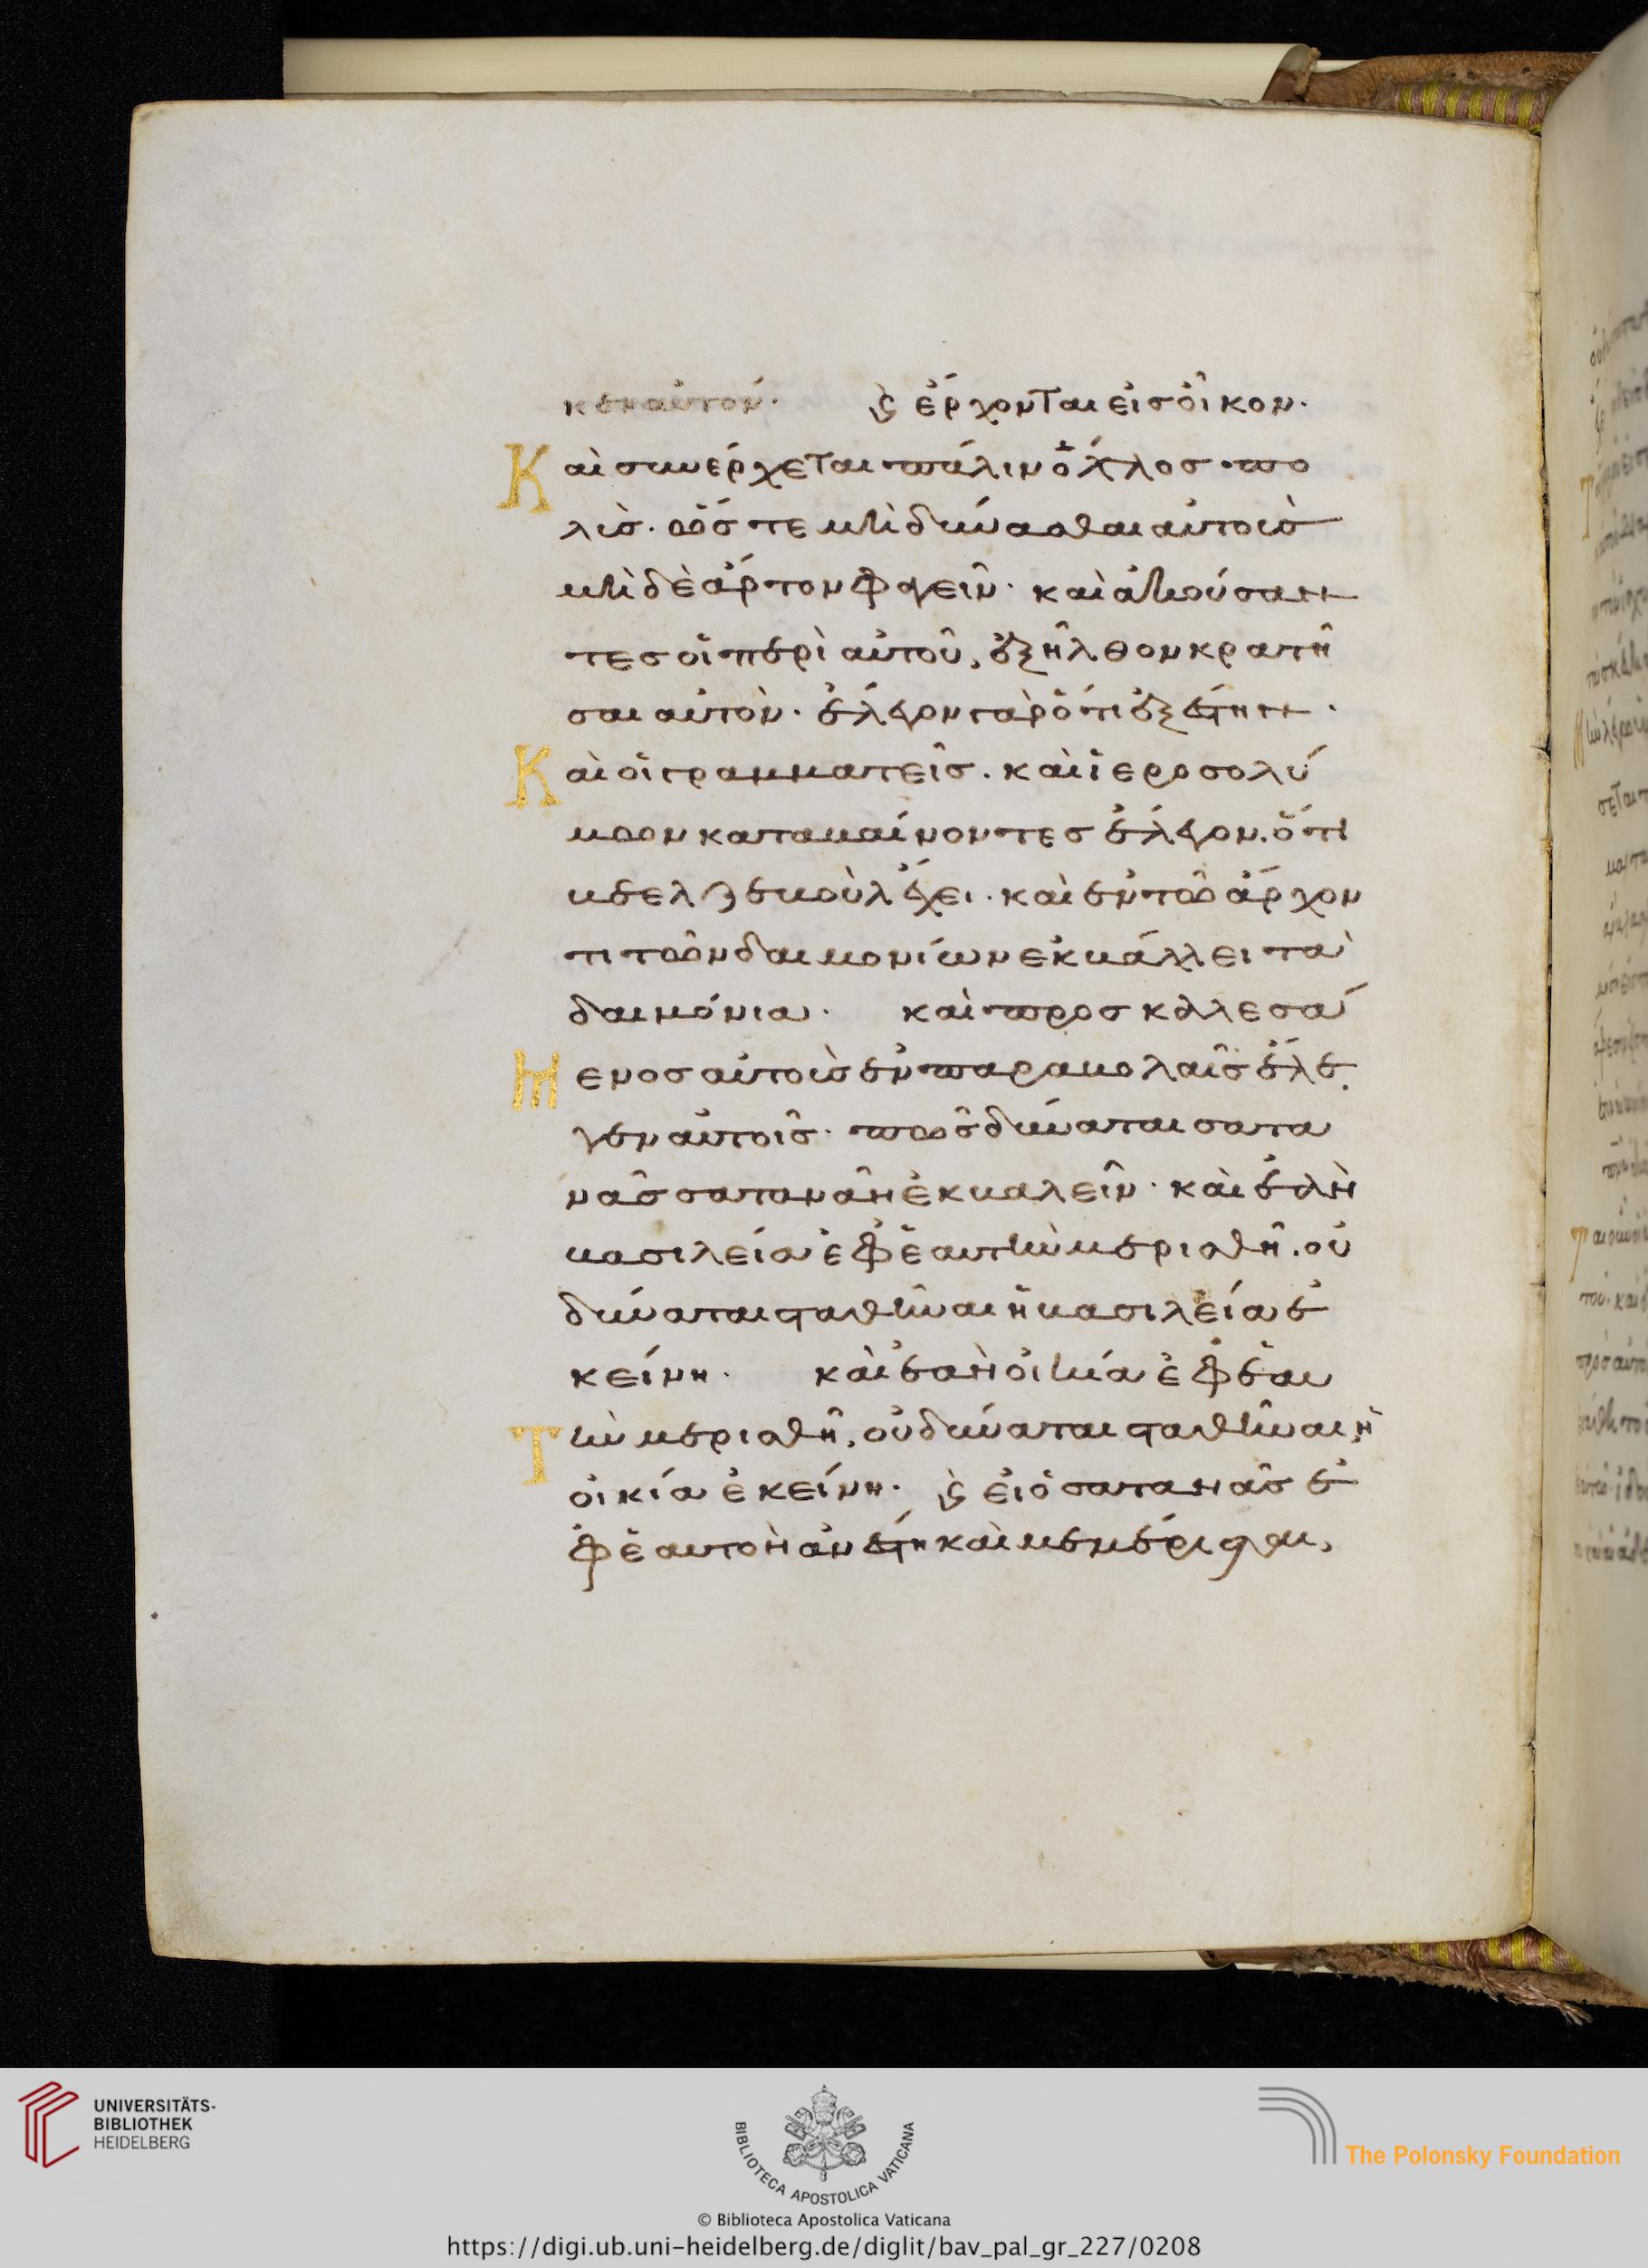 κεν αὐτόν. ϗ ἔρχονται εἰς οἶκον.
Καὶ συνέρχεται πάλιν ὄχλος πο
λὺσ. ὥστε μὴ δύνασθαι αὐτοὺσ
μὴ δὲ ἄρτον φαγεῖν. καὶ ἀκούσαν
τεσ οἱ περὶ αὐτοῦ, ἐξῆλθον κρατῆ
σαι αὐτὸν. ἔλεγον γὰρ ὅτι ἐξέστη.
Καὶ οἱ γραμματεῖσ. καὶ ἱεροσολύ
μων καταβαίνοντεσ ἔλεγον. ὅτι
βεελζεβοὺλ ἔχει. καὶ ἐν τῶ ἄρχον
τι τῶν δαιμονίων ἐκβάλλει τὰ
δαιμόνια. καὶ προσκαλεσά
Μενοσ αὐτοὺσ ἐν παραβολαῖσ ἔλε
γεν αὐτοῖσ. πῶσ δύναται σατα
νᾶσ σατανᾶν ἐκβαλεῖν. καὶ ἐὰν
βασιλεία ἐφ ἑαυτὴν μερισθῆ. οὐ
δύναται σταθῆναι ἡ βασιλεία ἐ
κείνη. καὶ ἐὰν οἰκία ἐφ ἑαυ
Τὴν μερισθῆ, οὐ δύναται σταθῆναι ἡ
οἰκία ἐκείνη. ϗ εἰ ὁ σατανᾶσ ἐ
φ ἑαυτὸν ἀνέστη καὶ μεμέρισται,
UNIVERSITÄTS-
BIBLIOTHEK
HEIDELBERG
BIBLIOTECA APOSTOLICA VATICANA
The Polonsky Foundation
© Biblioteca Apostolica Vaticana
https://digi.ub.uni-heidelberg.de/diglit/bav_pal_gr_227/0208